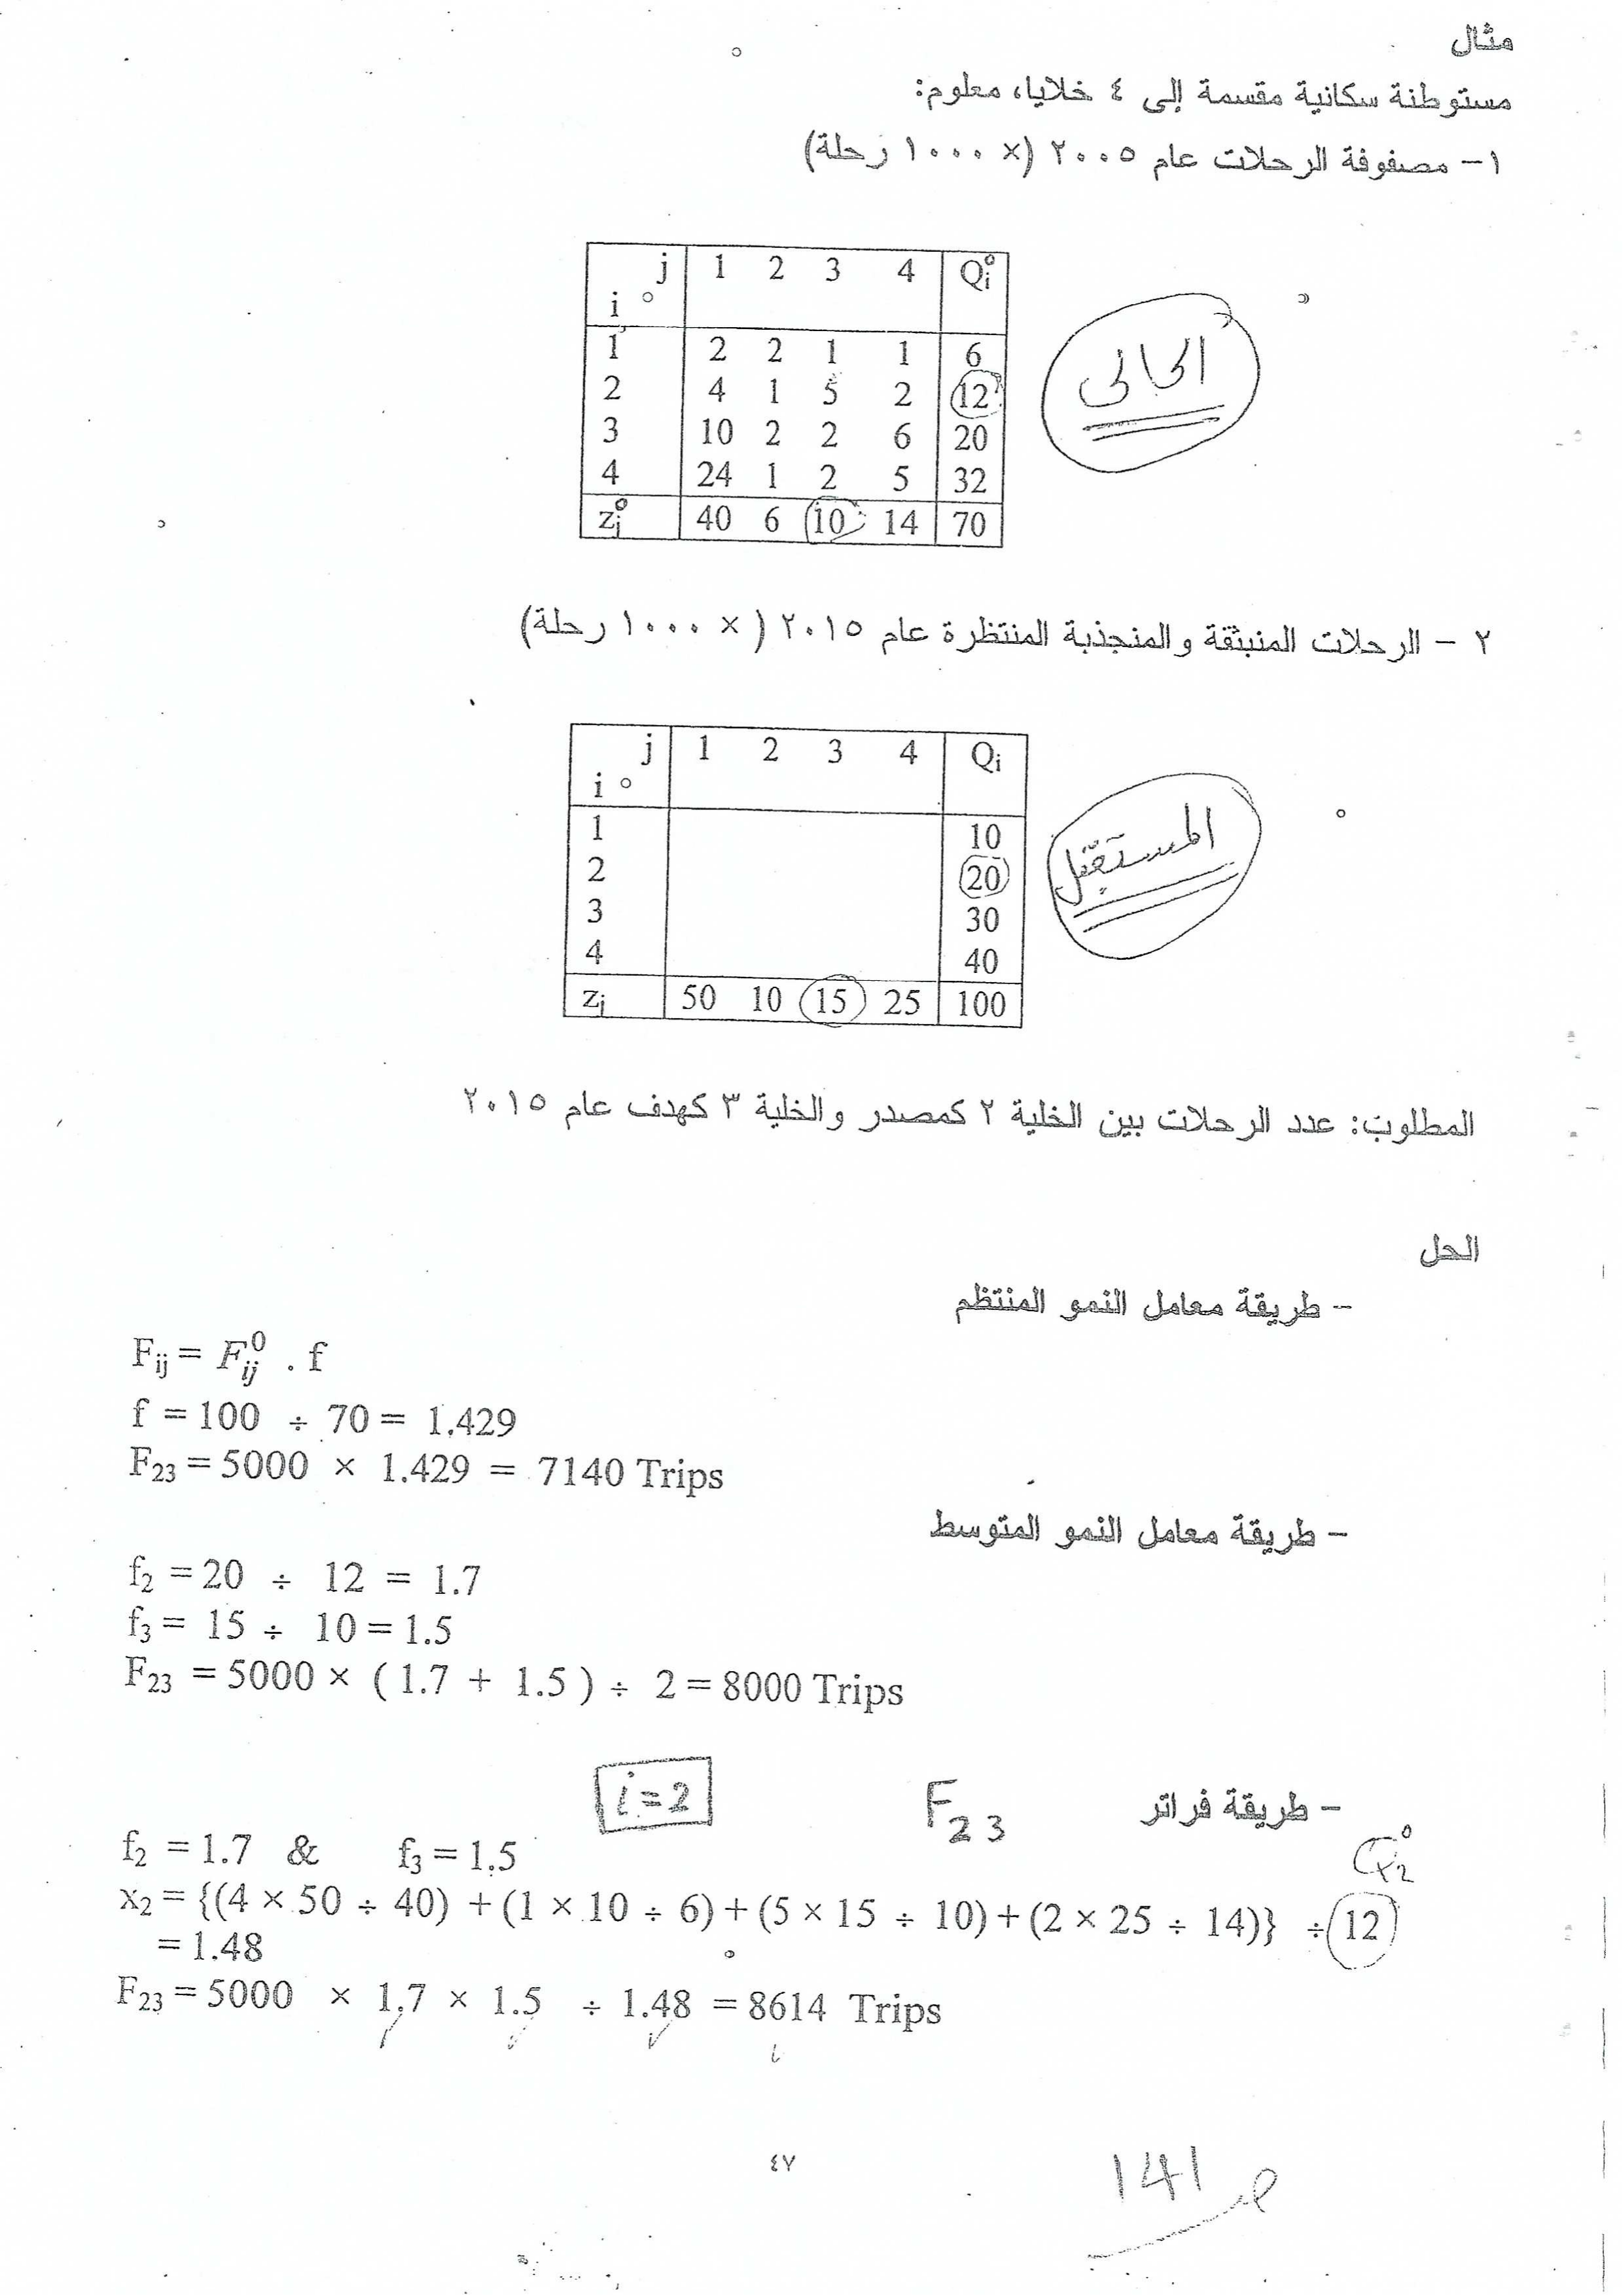 مثال
مستوطنة سكانية مقسمة إلى ٤ خلايا، معلوم:
١- مصفوفة الرحلات عام ٢٠٠٥ (× ١٠٠٠ رحلة)
j 1 2 3 4 Qi°
i
1 2 2 1 1 6
2 4 1 5 2 12
3 10 2 2 6 20
4 24 1 2 5 32
zj° 40 6 10 14 70
الحالى
٢ - الرحلات المنبثقة والمنجذبة المنتظرة عام ٢٠١٥ ( × ١٠٠٠ رحلة)
j 1 2 3 4 Qi
i
1 10
2 20
3 30
4 40
zj 50 10 15 25 100
المستقبل
المطلوب: عدد الرحلات بين الخلية ٢ كمصدر والخلية ٣ كهدف عام ٢٠١٥
الحل
- طريقة معامل النمو المنتظم
Fij = F0ij . f
f = 100 ÷ 70 = 1.429
F23 = 5000 × 1.429 = 7140 Trips
- طريقة معامل النمو المتوسط
f2 = 20 ÷ 12 = 1.7
f3 = 15 ÷ 10 = 1.5
F23 = 5000 × ( 1.7 + 1.5 ) ÷ 2 = 8000 Trips
- طريقة فراتر
F23
i=2
f2 = 1.7 & f3 = 1.5
Q2°
x2 = {(4 × 50 ÷ 40) + (1 × 10 ÷ 6) + (5 × 15 ÷ 10) + (2 × 25 ÷ 14)} ÷ 12
= 1.48
F23 = 5000 × 1.7 × 1.5 ÷ 1.48 = 8614 Trips
٤٧
141